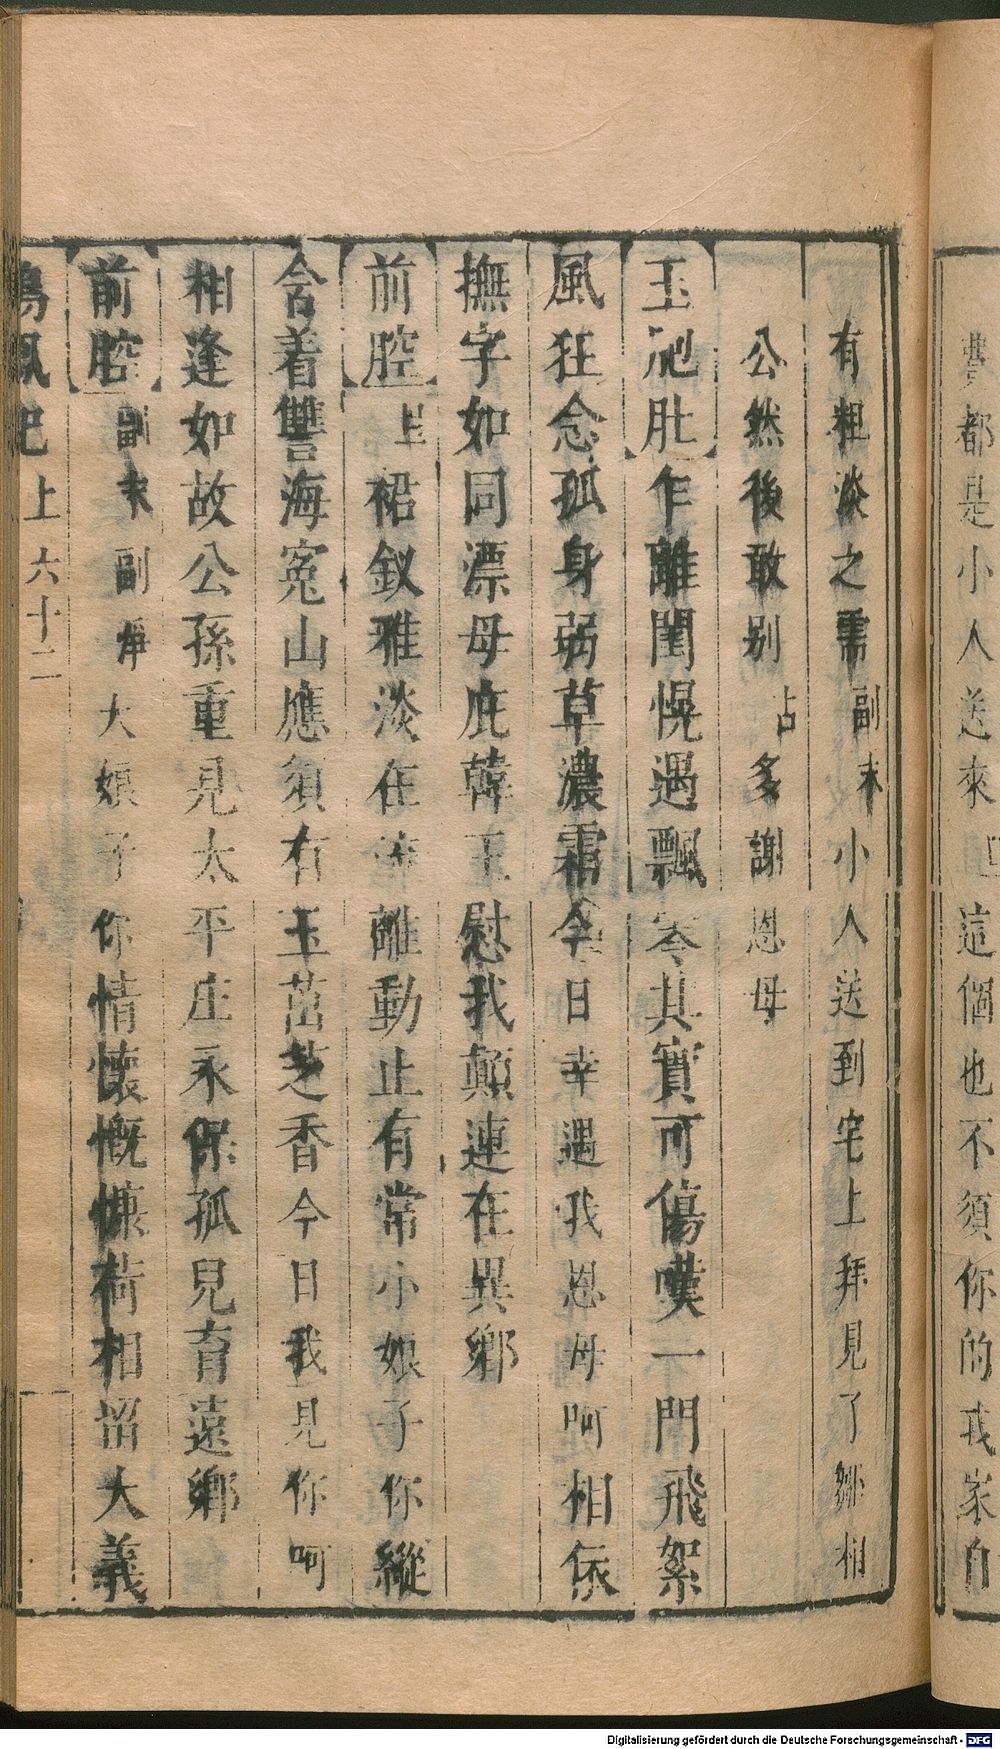 都是小人送來這個也不須你的我家自
有粗淡之需副末小人送到宅上拜見了鄒相
公然後敢别占多謝恩母
玉胞肚乍離閨幌遇飄零其實可傷嘆一門飛絮
風狂念孤身弱草濃霜今日幸遇我恩母呵相依
撫字如同漂母庇韓王慰我顛連在異鄉
前腔上裙釵雅淡在離動止有常小娘子你縱
含着讐海寃山應須有玉茁芝香今日我見你呵
相逢如故公孫重見太平庄永保孤兒育遠鄉
前腔副末副淨大娘子你情懷慨慷荷相留大義
鳳記上六十二
Digitalisierung gefördert durch die Deutsche Forschungsgemeinschaft - DFG